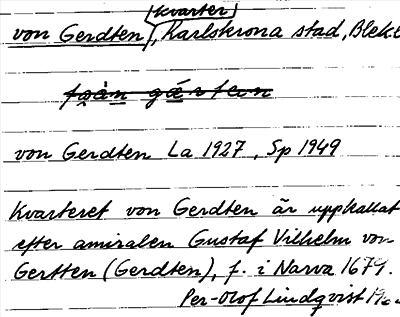 kvarter
von Gerdten, Karlskrona stad, Blek
von Gerdten La 1927, Sp 1949
Kvarteret von Gerdten är uppkallat
efter amiralen Gustaf Vilhelm von
Gertten (Gerdten), f. i Narva 1679.
Per-Olof Lindqvist